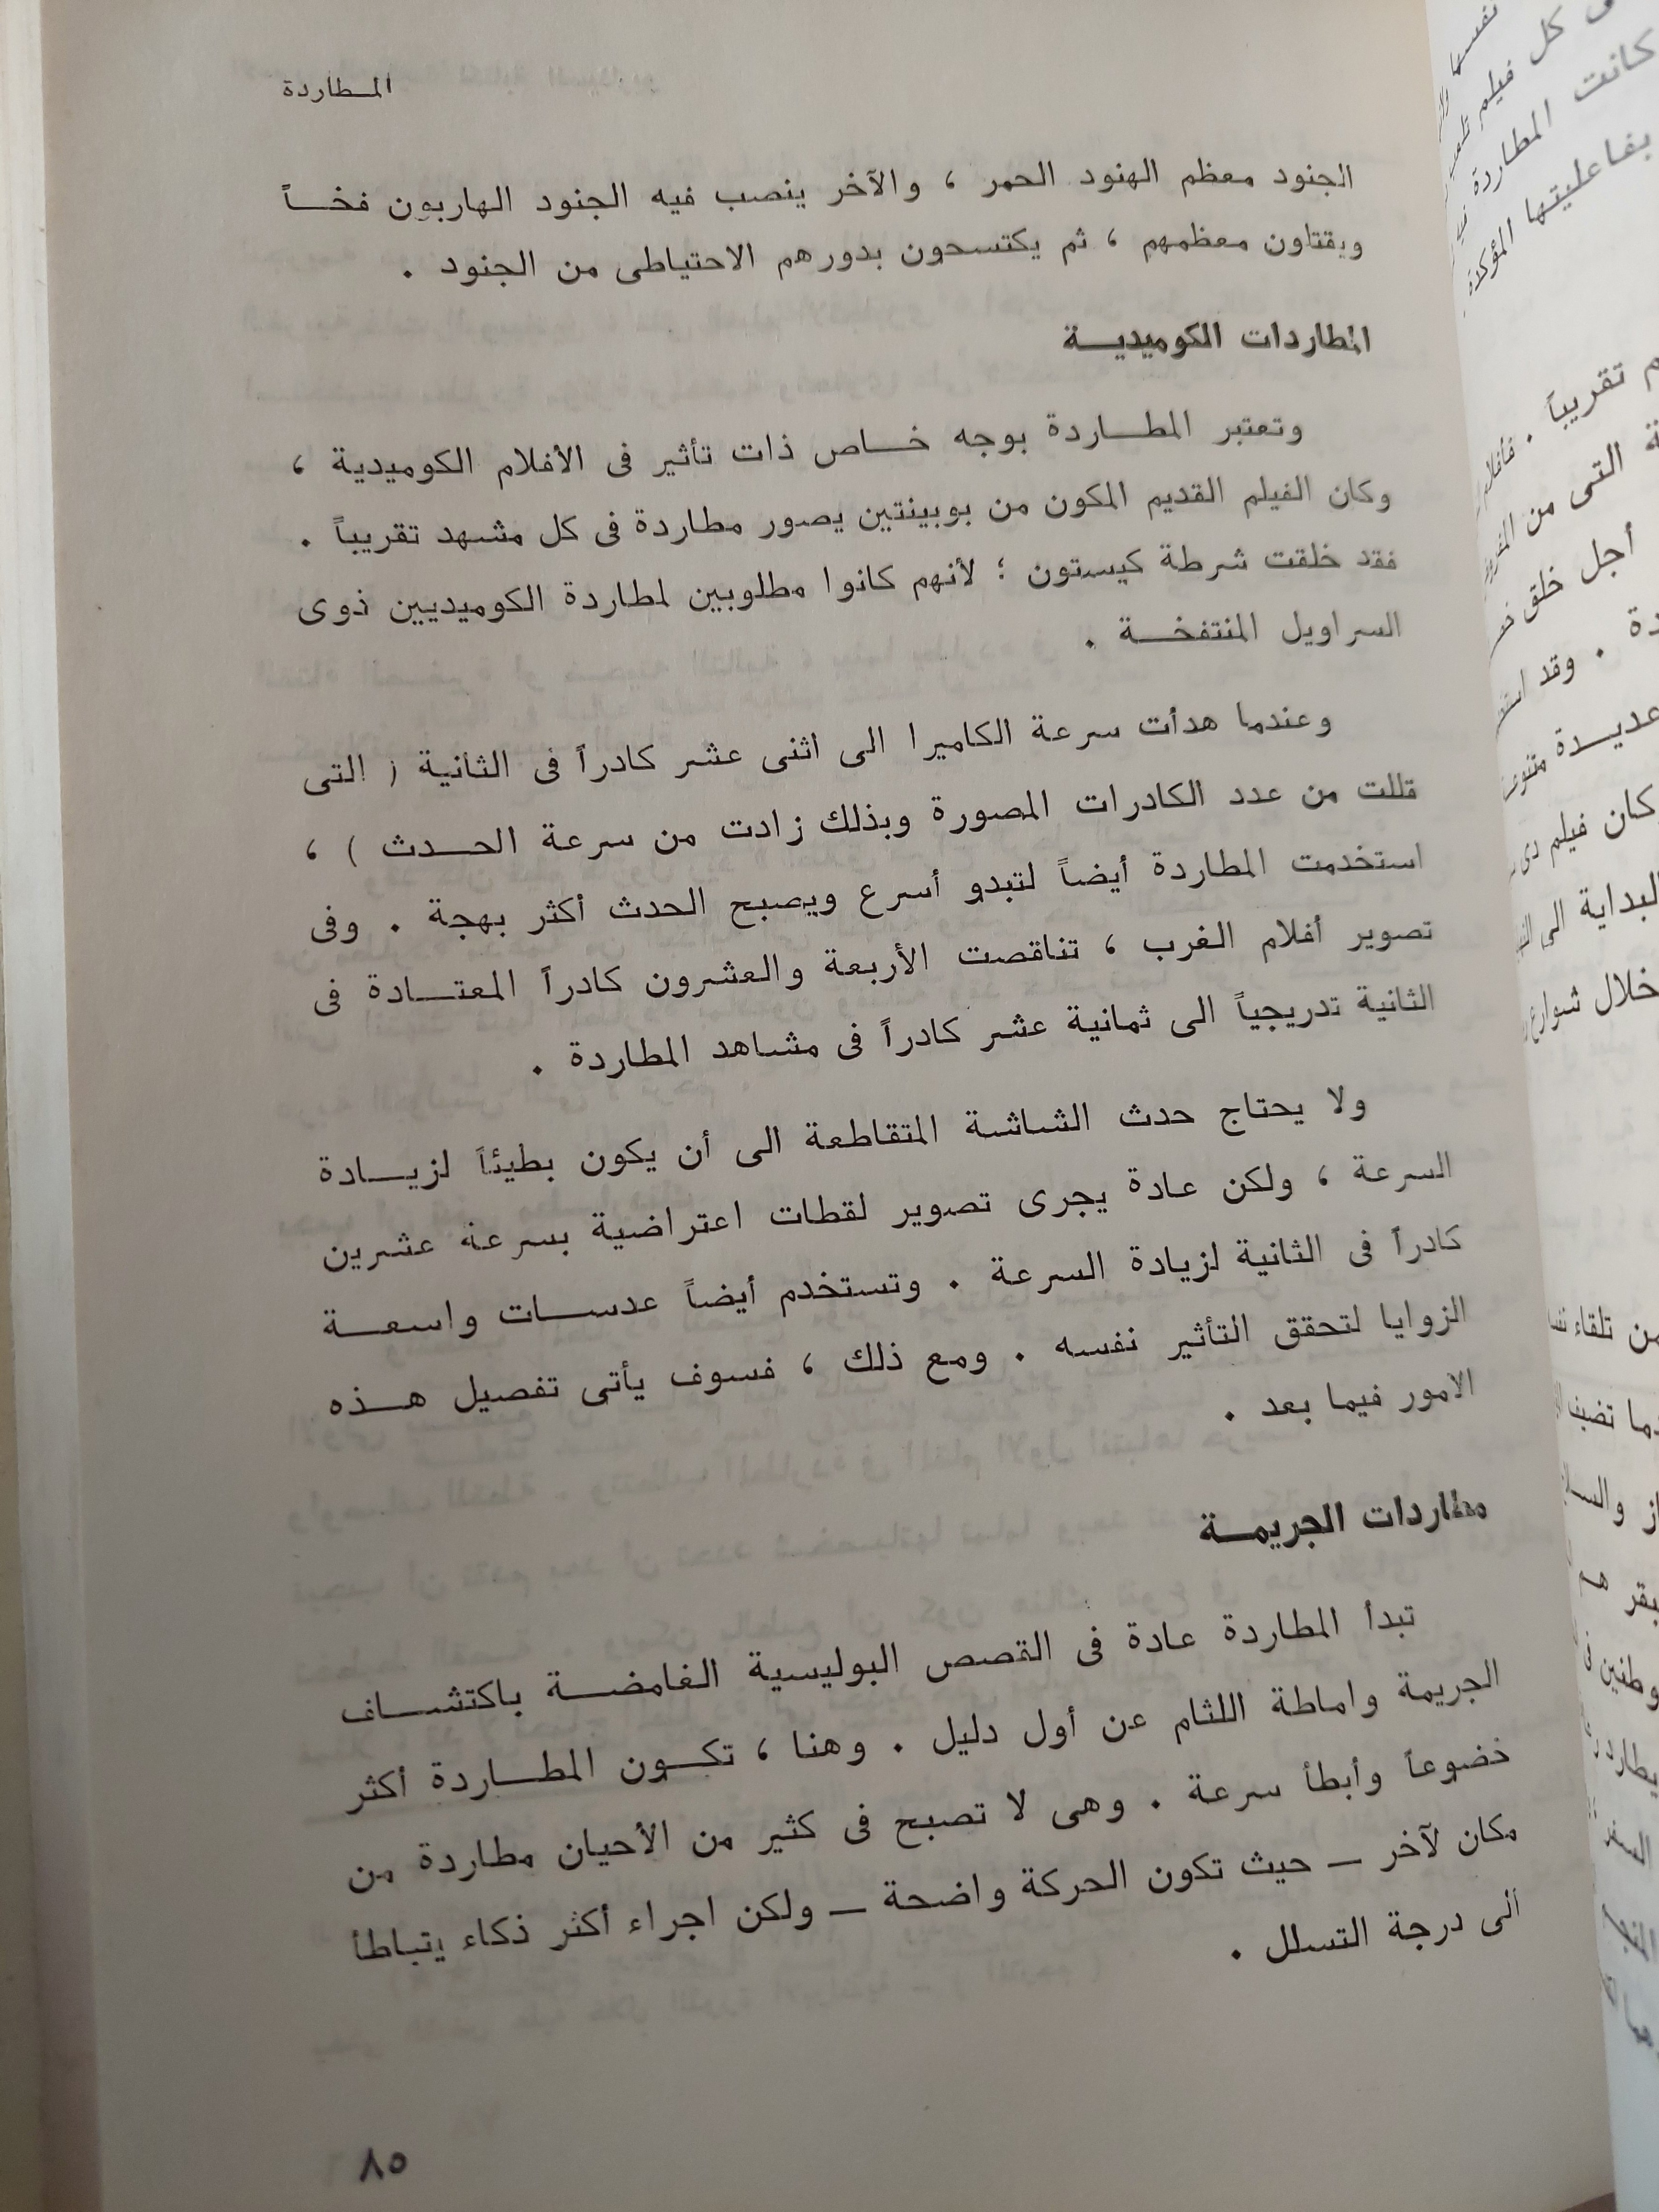 المـطاردة
الجنود معظم الهنود الحمر ، والآخر ينصب فيه الجنود الهاربون فخـــاً
ويقتلون معظمهم ، ثم يكتسحون بدورهم الاحتياطى من الجنود .
المطاردات الكوميديــة
وتعتبر المطـــاردة بوجه خـــاص ذات تأثير فى الأفلام الكوميدية ،
وكان الفيلم القديم المكون من بوبينتين يصور مطاردة فى كل مشهد تقريباً .
فقد خلقت شرطة كيستون ؛ لأنهم كانوا مطلوبين لمطاردة الكوميديين ذوى
السراويل المنتفخــة .
وعندما هدأت سرعة الكاميرا الى اثنى عشر كادراً فى الثانية ( التى
قللت من عدد الكادرات المصورة وبذلك زادت من سرعة الحــدث ) ،
استخدمت المطاردة أيضاً لتبدو أسرع ويصبح الحدث أكثر بهجة . وفى
تصوير أفلام الغرب ، تناقصت الأربعة والعشرون كادراً المعتـــادة فى
الثانية تدريجياً الى ثمانية عشر كادراً فى مشاهد المطاردة .
ولا يحتاج حدث الشاشة المتقاطعة الى أن يكون بطيئاً لزيـــادة
السرعة ، ولكن عادة يجرى تصوير لقطات اعتراضية بسرعة عشرين
كادراً فى الثانية لزيادة السرعة . وتستخدم أيضاً عدســـات واسعـــة
الزوايا لتحقق التأثير نفسه . ومع ذلك ، فسوف يأتى تفصيل هـــذه
الامور فيما بعد .
مطاردات الجريمــة
تبدأ المطاردة عادة فى القصص البوليسية الغامضـــة باكتشـــاف
الجريمة واماطة اللثام عن أول دليل . وهنا ، تكــون المطـــاردة أكثر
خضوعاً وأبطأ سرعة . وهى لا تصبح فى كثير من الأحيان مطاردة من
مكان لآخر — حيث تكون الحركة واضحة — ولكن اجراء أكثر ذكاء يتباطأ
الى درجة التسلل .
٨٥